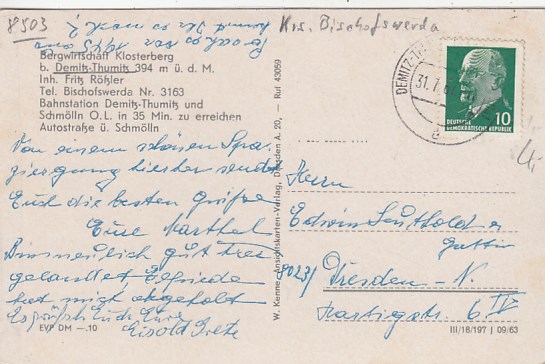 8503
Krs. Bischofswerda
Bergwirtschaft Klosterberg
b. Demitz-Thumitz 394 m ü. d. M.
Inh. Fritz Rößler
Tel. Bischofswerda Nr. 3163
Bahnstation Demitz-Thumitz und
Schmölln O.L. in 35 Min. zu erreichen
Autostraße ü. Schmölln
Von einem schönen Spa-
ziergang hierher sendet
Euch die besten Grüße
Eure
Bin neulich gut hier
gelandet, Elfriede
hat mich abgeholt
Es grüßt Euch Eure
Grete
EVP DM —.10
W. Kenne, Ansichtskarten-Verlag, Dresden A. 20, — Ruf 43059
DEMITZ-TH
31.7.
a
DEUTSCHE
DEMOKRATISCHE REPUBLIK
10
Herrn
Edwin Leuthold u
Gattin
8023 Dresden - N.
6 IV
III/18/197 J 09/63